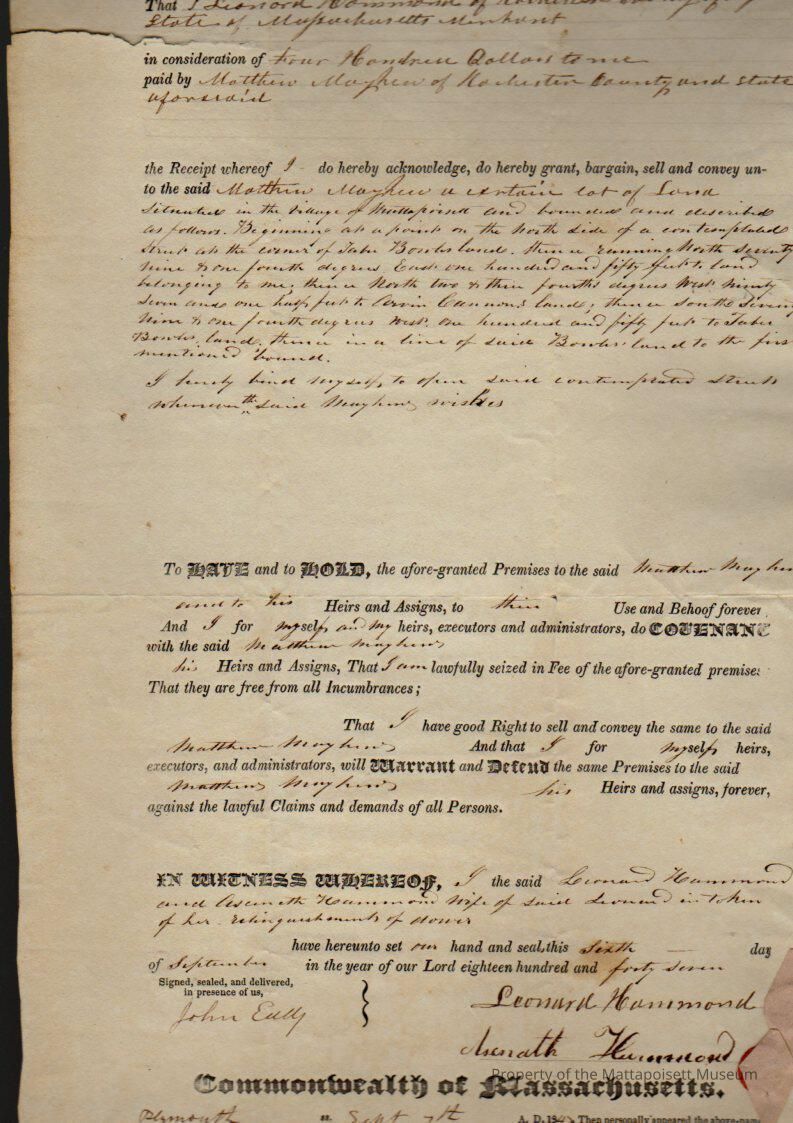 That I Leonard Hammond of Rochester
State of Massachusetts Merchant
in consideration of Four Hundred Dollars to me
paid by Matthew Mayhew of Rochester County and State
aforesaid
the Receipt whereof I do hereby acknowledge, do hereby grant, bargain, sell and convey un-
to the said Matthew Mayhew a certain lot of Land
Situated in the Village of Mattapoisett and bounded and described
as follows. Beginning at a point on the North side of a contemplated
Street at the corner of Bowls land. thence running North seventy
nine & one fourth degrees East one hundred and fifty feet to land
belonging to me; thence North two & three fourths degrees West Ninety
Seven and one half feet to Cannons land; thence South Seventy
Nine & one fourth degrees West. one hundred and fifty feet to
Bowls land. thence in a line of said Bowls land to the first
mentioned bound.
I hereby bind myself to open said contemplated Street
whenever the said Mayhew wishes
To HAVE and to HOLD, the afore-granted Premises to the said Matthew Mayhew
and to his Heirs and Assigns, to their Use and Behoof forever.
And I for myself and my heirs, executors and administrators, do COVENANT
with the said Matthew Mayhew
his Heirs and Assigns, That I am lawfully seized in Fee of the afore-granted premises
That they are free from all Incumbrances;
That I have good Right to sell and convey the same to the said
Matthew Mayhew And that I for myself heirs,
executors, and administrators, will Warrant and Defend the same Premises to the said
Matthew Mayhew his Heirs and assigns, forever,
against the lawful Claims and demands of all Persons.
IN WITNESS WHEREOF, I the said Leonard Hammond
and Asenath Hammond wife of said Leonard in token
of her relinquishments of dower
have hereunto set our hand and seal, this Sixth day
of September in the year of our Lord eighteen hundred and forty seven
Signed, sealed, and delivered,
in presence of us,
John
Leonard Hammond
Asenath Hammond
Property of the Mattapoisett Museum
Commonwealth of Massachusetts.
Plymouth ss. Sept 7th A. D. 184 Then personally appeared the above-name